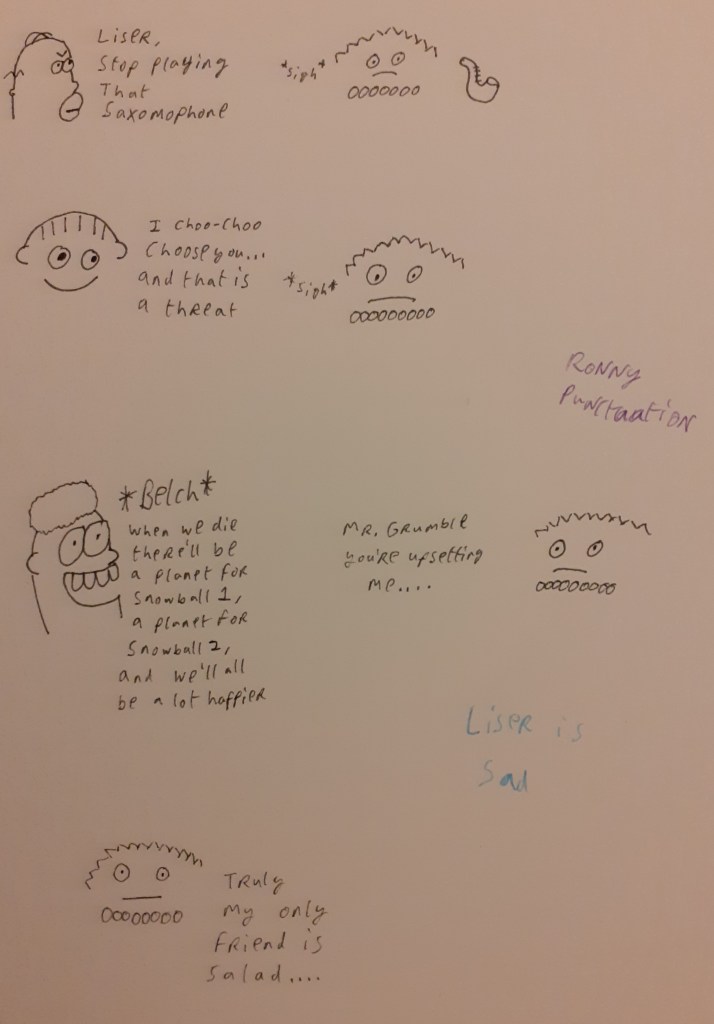 Liser,
Stop playing
That
Saxomophone
*sigh*
I choo-choo
Choose you...
and that is
a threat
*sigh*
RONNY
PUNCTUATION
*Belch*
when we die
there'll be
a planet for
Snowball 1,
a planet for
Snowball 2,
and we'll all
be a lot happier
MR. GRUMBLE
you're upsetting
me....
Liser is
Sad
Truly
my only
friend is
salad....